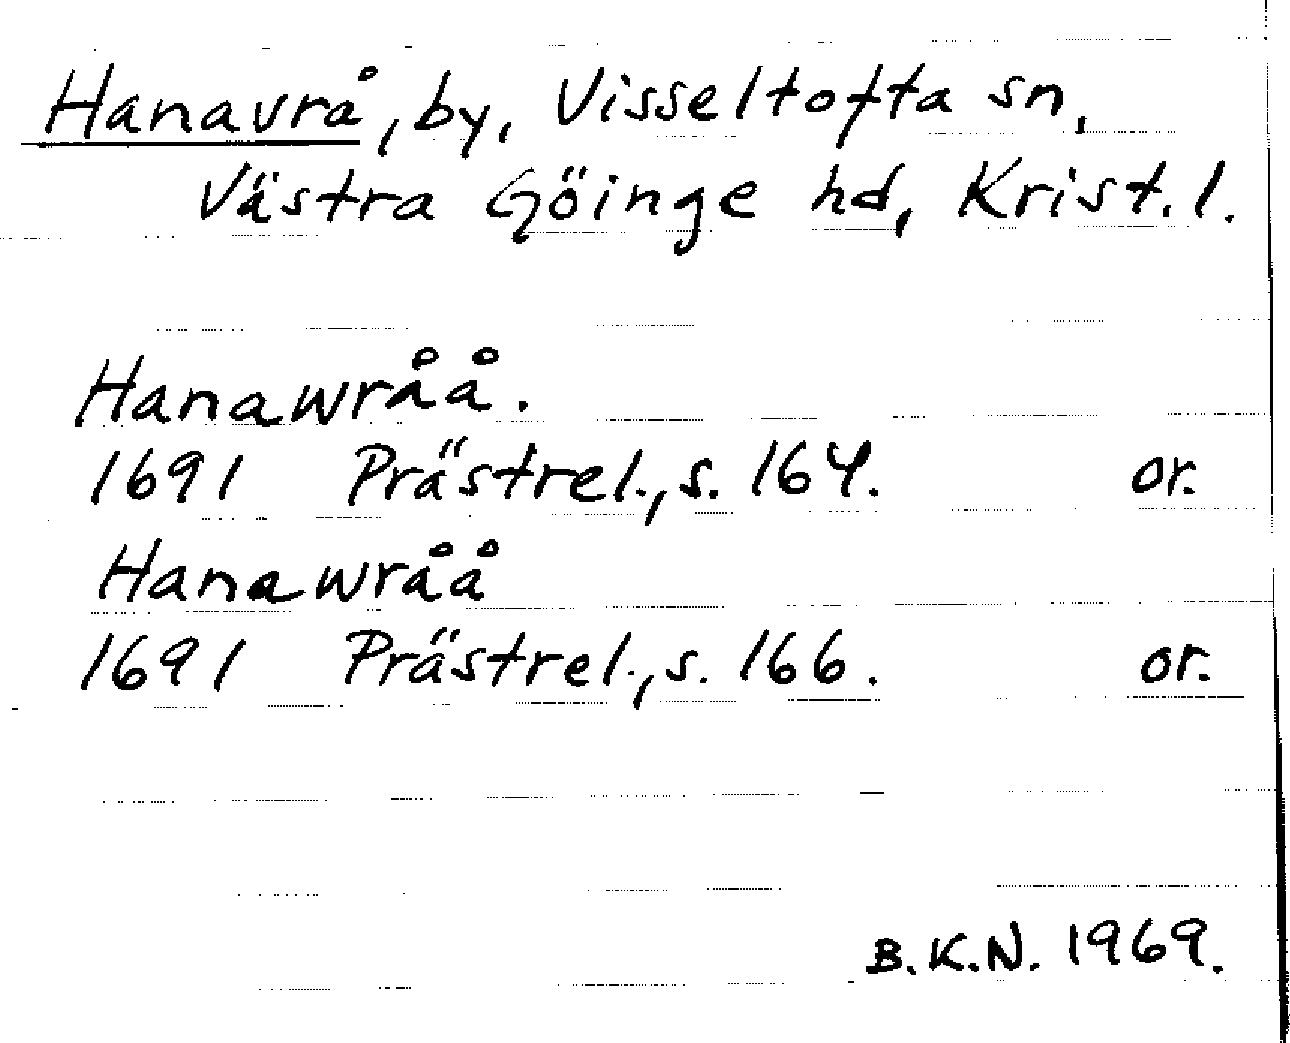 Hanavrå, by, Visseltofta sn,
Västra Göinge hd, Krist. l.
Hanawråå.
1691 Prästrel., s. 164. or.
Hanawråå
1691 Prästrel., s. 166. or.
B.K.N. 1969.